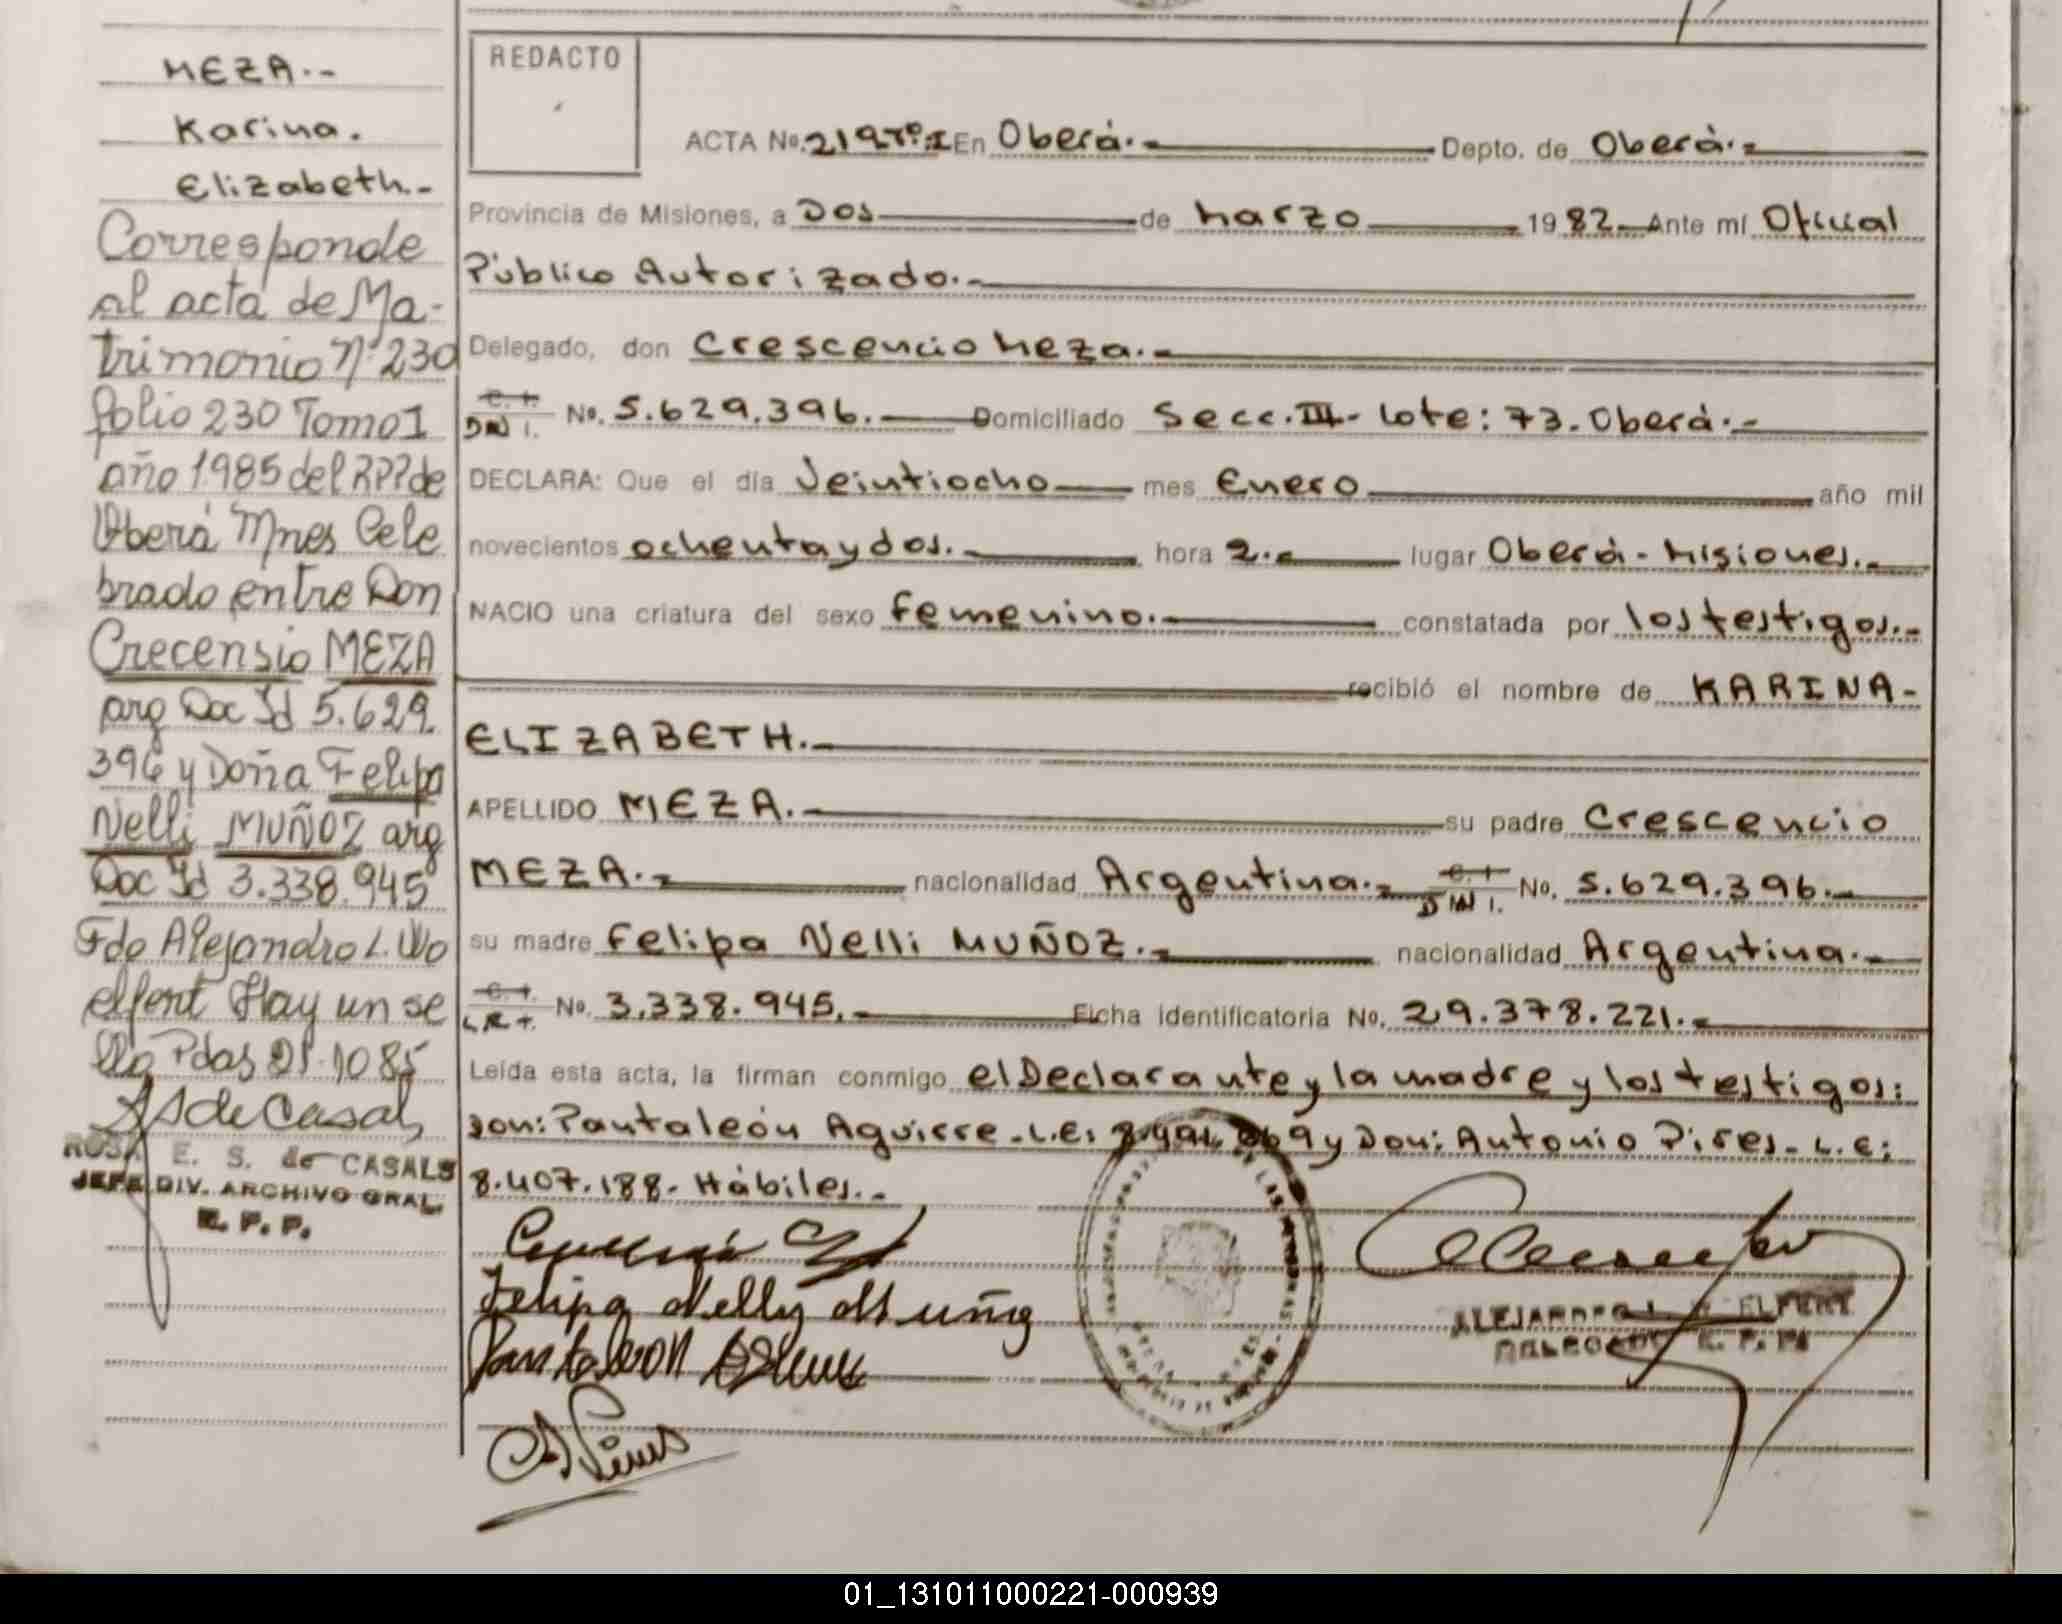 MEZA.-
Karina.
Elizabeth.-
Corresponde
al acta de Ma-
trimonio Nº 230
folio 230 Tomo I
año 1985 del RPP de
Oberá Mnes Cele
brado entre Don
Crecensio MEZA
arg Doc Id 5.629.
396 y Doña Felipa
Nelli MUÑOZ arg
Doc Id 3.338.945
Fdo Alejandro L. Wo
elfert Hay un se
llo Pdas 21-10 85
ROSA E. S. de CASALS
JEFA DIV. ARCHIVO GRAL.
R. P. P.
REDACTO
ACTA No. 219 Tº I En Oberá.- Depto. de Oberá.-
Provincia de Misiones, a Dos de Marzo 1982 Ante mí Oficial
Público Autorizado.-
Delegado, don Crescencio Meza.-
C. I. DNI. No. 5.629.396. Domiciliado Secc. III- Lote: 73. Oberá.-
DECLARA: Que el día Veintiocho mes Enero año mil
novecientos ochenta y dos. hora 2.- lugar Oberá - Misiones.-
NACIO una criatura del sexo Femenino.- constatada por los testigos.-
recibió el nombre de KARINA-
ELIZABETH.-
APELLIDO MEZA.- su padre Crescencio
MEZA.- nacionalidad Argentina.- C. I. DNI. No. 5.629.396.-
su madre Felipa Nelli MUÑOZ.- nacionalidad Argentina.-
C. I. No. 3.338.945.- Ficha identificatoria No. 29.378.221.-
Leída esta acta, la firman conmigo el Declarante y la madre y los testigos:
Don: Pantaleón Aguirre. L.E: y Don: Antonio Pires. L.E:
8.407.188. Hábiles.-
Felipa Nelly Muño
Pantaleon
A Pires
ALEJANDRO L. W ELFERT
DELEGADO R. P. P.
01_131011000221-000939